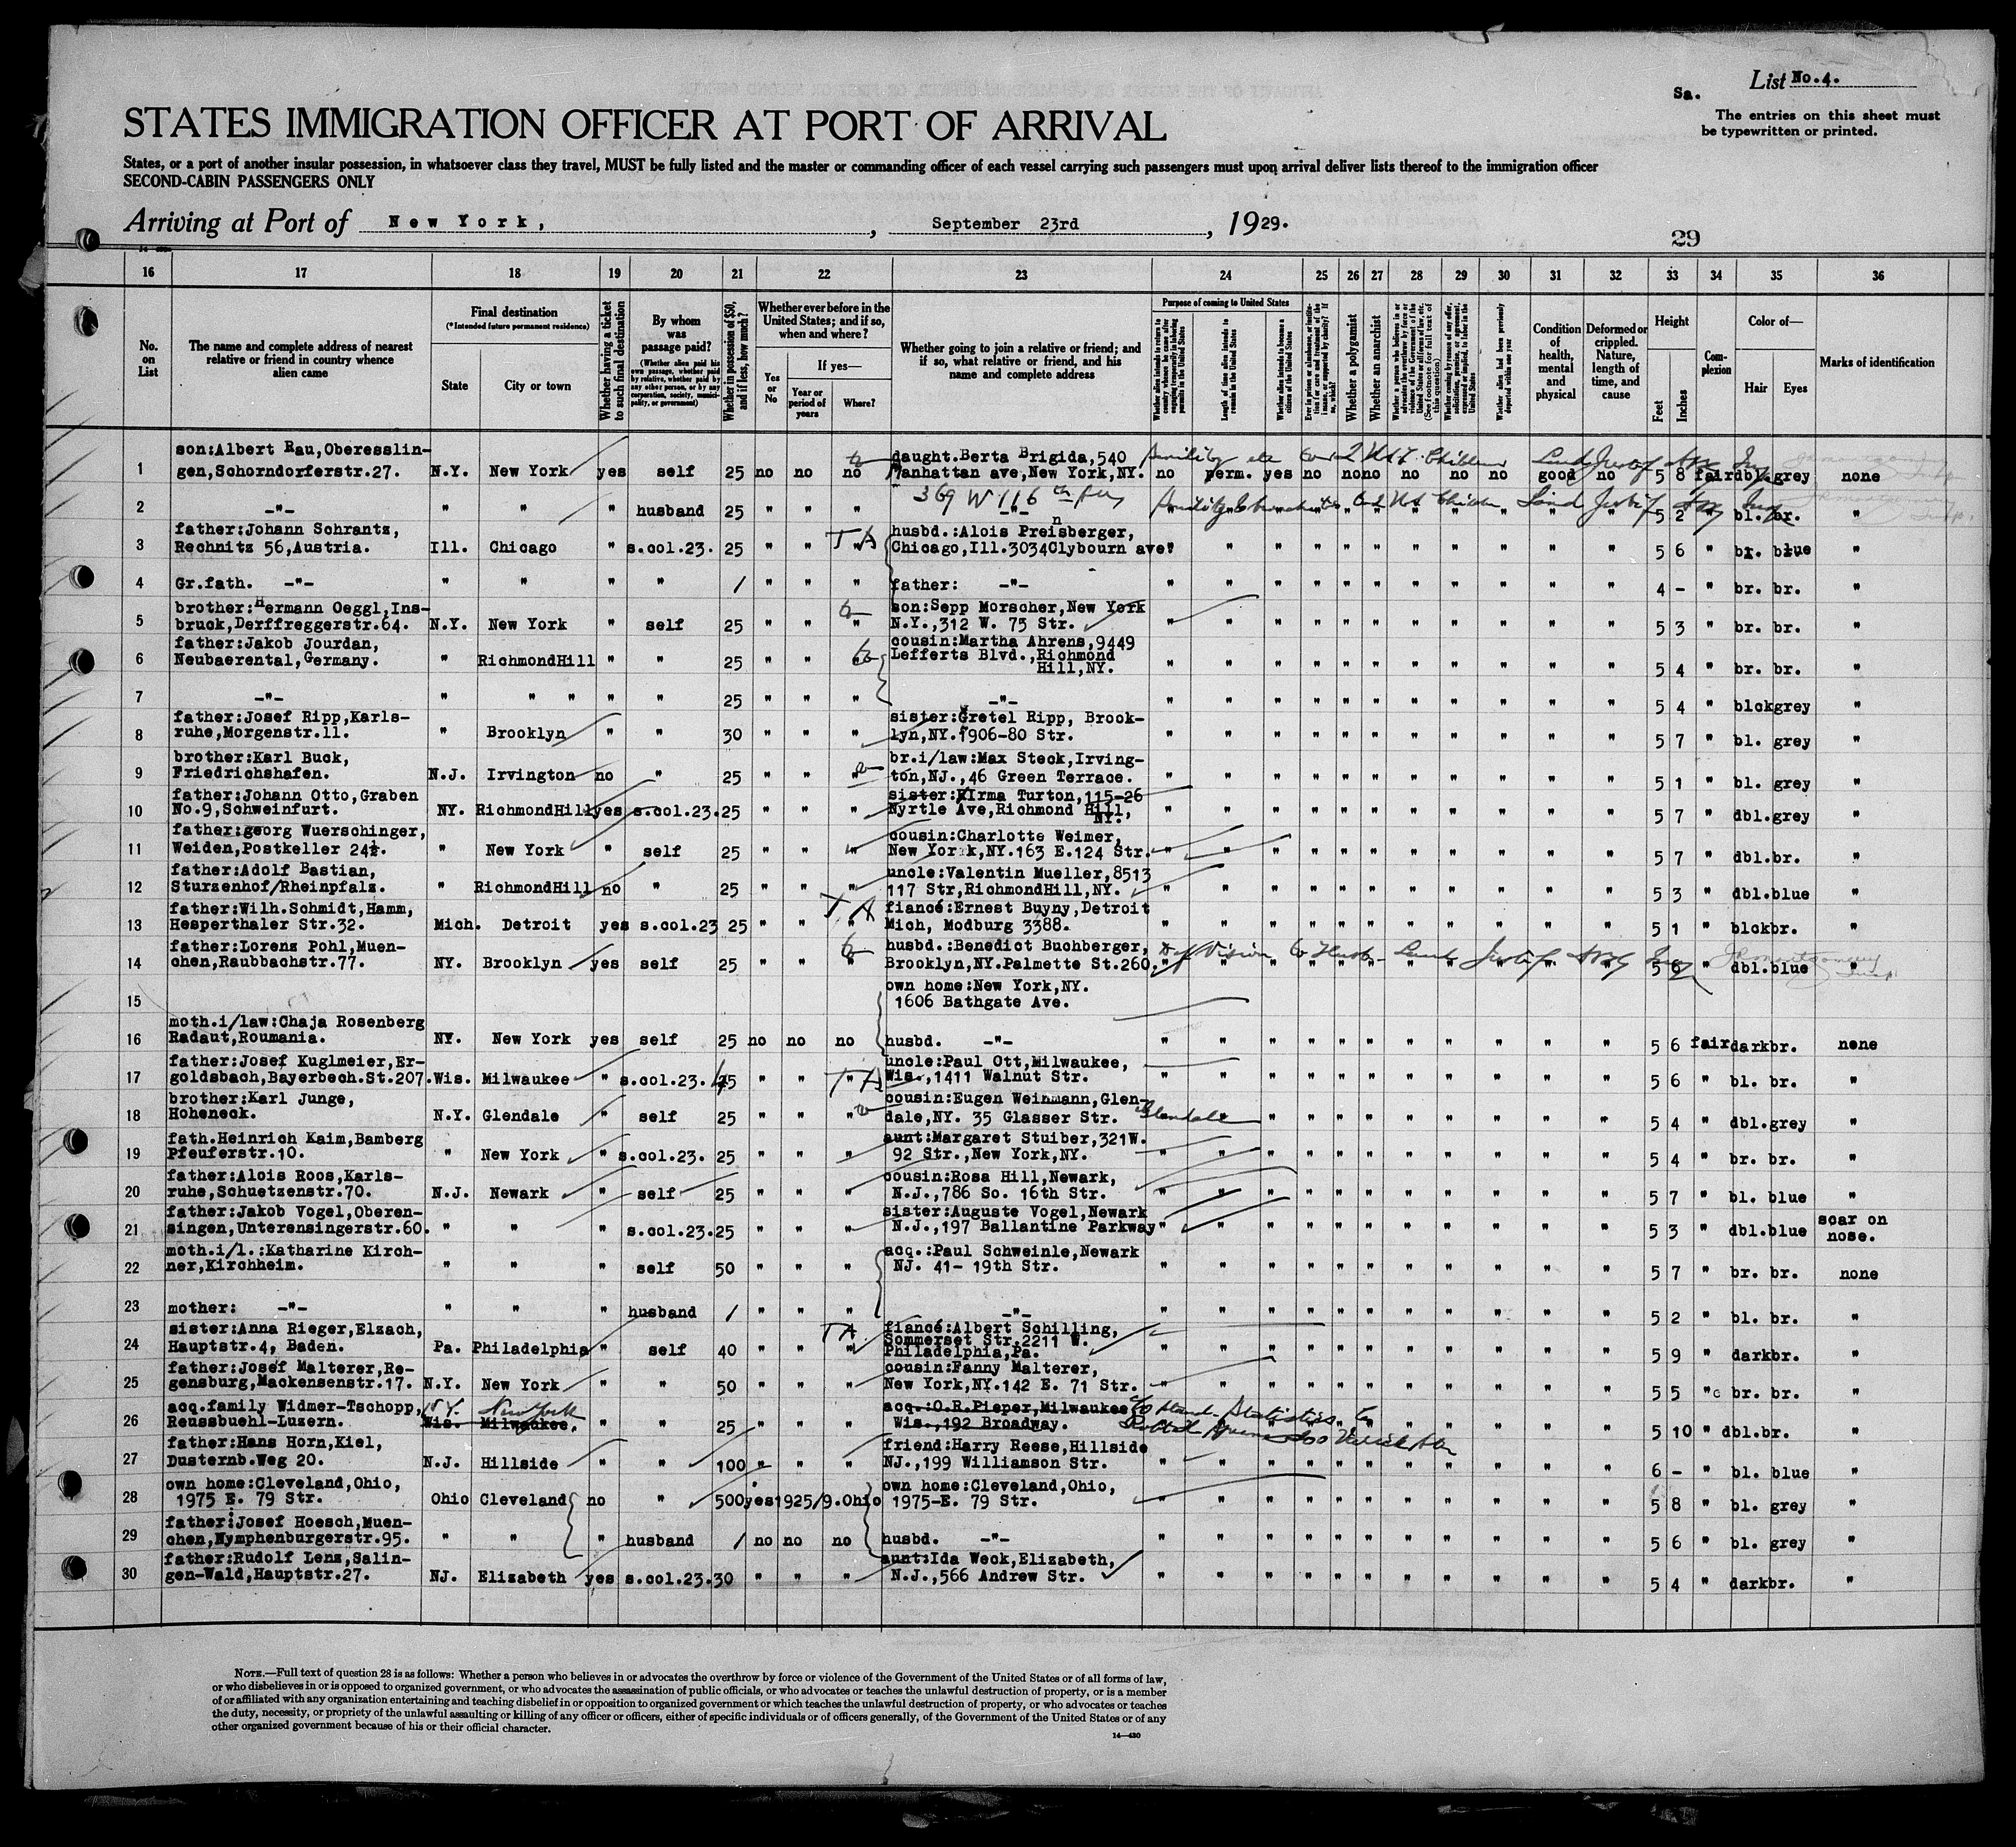 List No.4.
Sa.
The entries on this sheet must
be typewritten or printed.
STATES IMMIGRATION OFFICER AT PORT OF ARRIVAL
States, or a port of another insular possession, in whatsoever class they travel, MUST be fully listed and the master or commanding officer of each vessel carrying such passengers must upon arrival deliver lists thereof to the immigration officer
SECOND-CABIN PASSENGERS ONLY
Arriving at Port of New York, , September 23rd , 1929.
29
16 17 18 19 20 21 22 23 24 25 26 27 28 29 30 31 32 33 34 35 36
No. on List
The name and complete address of nearest relative or friend in country whence alien came
Final destination
(*Intended future permanent residence)
State
City or town
Whether having a ticket to such final destination
By whom was passage paid?
(Whether alien paid his own passage, whether paid by relative, whether paid by any other person, or by any corporation, society, municipality, or government)
Whether in possession of $50, and if less, how much?
Whether ever before in the United States; and if so, when and where?
Yes or No
If yes—
Year or period of years
Where?
Whether going to join a relative or friend; and if so, what relative or friend, and his name and complete address
Purpose of coming to United States
Length of time alien intends to remain in the United States
Whether alien intends to become a citizen of the United States
Whether a polygamist
Whether an anarchist
Condition of health, mental and physical
Deformed or crippled. Nature, length of time, and cause
Height
Feet
Inches
Complexion
Color of—
Hair
Eyes
Marks of identification
1 son:Albert Rau,Oberesslin-
gen,Schorndorferstr.27. N.Y. New York yes self 25 no no no daught.Berta Brigida,540
Manhattan ave,New York,NY. no perm. yes no no no no no no good no 5 8 fair dbl. grey none
369 W 116
2 -"- " " " husband 25 " " " -"- " " " " " " " " " " " 5 2 " bl. br. "
3 father:Johann Schrantz,
Rechnitz 56,Austria. Ill. Chicago " s.col.23. 25 " " " T A husbd.:Alois Preisberger,
Chicago,Ill.3034Clybourn ave. " " " " " " " " " " " 5 6 " br. blue "
4 Gr.fath. -"- " " " " / " " " father: -"- " " " " " " " " " " " 4 - " br. br. "
5 brother:Hermann Oeggl,Ins-
bruck,Derffreggerstr.64. N.Y. New York " self 25 " " " son:Sepp Morscher,New York
N.Y.,312 W. 75 Str. " " " " " " " " " " " 5 3 " br. br. "
6 father:Jakob Jourdan,
Neubaerental,Germany. " RichmondHill " " 25 " " " cousin:Martha Ahrens,9449
Lefferts Blvd.,Richmond
Hill,NY. " " " " " " " " " " " 5 4 " br. br. "
7 -"- " " " " " 25 " " " -"- " " " " " " " " " " " 5 4 " blck grey "
8 father:Josef Ripp,Karls-
ruhe,Morgenstr.11. " Brooklyn " " 30 " " " sister:Gretel Ripp, Brook-
lyn,NY.1906-80 Str. " " " " " " " " " " " 5 7 " bl. grey "
9 brother:Karl Buck,
Friedrichshafen. N.J. Irvington no " 25 " " " br.i/law:Max Steck,Irving-
ton,NJ.,46 Green Terrace. " " " " " " " " " " " 5 1 " bl. grey "
10 father:Johann Otto,Graben
No.9,Schweinfurt. NY. RichmondHill yes s.col.23. 25 " " " sister:Irma Turton,115-26
Myrtle Ave,Richmond Hill,
NY. " " " " " " " " " " " 5 7 " dbl. grey "
11 father:georg Wuerschinger,
Weiden,Postkeller 24½. " New York " self 25 " " " cousin:Charlotte Weimer,
New York,NY.163 E.124 Str. " " " " " " " " " " " 5 7 " dbl. br. "
12 father:Adolf Bastian,
Sturzenhof/Rheinpfalz. " RichmondHill no " 25 " " " uncle:Valentin Mueller,8513
117 Str,RichmondHill,NY. " " " " " " " " " " " 5 3 " dbl. blue "
13 father:Wilh.Schmidt,Hamm,
Hesperthaler Str.32. Mich. Detroit yes s.col.23 25 " " T A fiancé:Ernest Buyny,Detroit
Mich, Modburg 3388. " " " " " " " " " " " 5 1 " blck br. "
14 father:Lorenz Pohl,Muen-
chen,Raubbachstr.77. NY. Brooklyn yes self 25 " " " husbd.:Benedict Buchberger,
Brooklyn,NY.Palmette St.260. " " " " " " " " " " " 5 6 " dbl. blue "
15 own home:New York,NY.
1606 Bathgate Ave.
16 moth.i/law:Chaja Rosenberg
Radaut,Roumania. NY. New York yes self 25 no no no husbd. -"- " " " " " " " " " " " 5 6 fair dark br. none
17 father:Josef Kuglmeier,Er-
goldsbach,Bayerbech.St.207. Wis. Milwaukee " s.col.23. 25 " " " T A uncle:Paul Ott,Milwaukee,
Wis.,1411 Walnut Str. " " " " " " " " " " " 5 6 " bl. br. "
18 brother:Karl Junge,
Hoheneck. N.Y. Glendale " self 25 " " " cousin:Eugen Weinmann,Glen-
dale,NY. 35 Glasser Str. Glendale " " " " " " " " " 5 4 " dbl. grey "
19 fath.Heinrich Kaim,Bamberg
Pfeuferstr.10. " New York " s.col.23. 25 " " " aunt:Margaret Stuiber,321W.
92 Str.,New York,NY. " " " " " " " " " " " 5 4 " br. br. "
20 father:Alois Roos,Karls-
ruhe,Schuetzenstr.70. N.J. Newark " self 25 " " " cousin:Rosa Hill,Newark,
N.J.,786 So. 16th Str. " " " " " " " " " " " 5 7 " bl. blue "
21 father:Jakob Vogel,Oberen-
singen,Unterensingerstr.60. " " s.col.23. 25 " " " sister:Auguste Vogel,Newark
N.J.,197 Ballantine Parkway " " " " " " " " " " " 5 3 " dbl. blue scar on
nose.
22 moth.i/l.:Katharine Kirch-
ner,Kirchheim. " " " self 50 " " " acq.:Paul Schweinle,Newark
NJ. 41- 19th Str. " " " " " " " " " " " 5 7 " br. br. none
23 mother: -"- " " " husband / " " " -"- " " " " " " " " " " " 5 2 " bl. br. "
24 sister:Anna Rieger,Elzach,
Hauptstr.4, Baden. Pa. Philadelphia " self 40 " " " TA fiancé:Albert Schilling,
Sommerset Str.2211 W.
Philadelphia,Pa. " " " " " " " " " " " 5 9 " dark br. "
25 father:Josef Malterer,Re-
gensburg,Mackensenstr.17. N.Y. New York " " 50 " " " cousin:Fanny Malterer,
New York,NY.142 E. 71 Str. " " " " " " " " " " " 5 5 " br. br. "
26 acq.family Widmer-Tschopp, N.Y. New York
Reussbuehl-Luzern. Wis. Milwaukee, " " 25 " " " acq.:O.R.Pieper,Milwaukee
Wis.,192 Broadway. " " " " " " " " " 5 10 " dbl. br. "
27 father:Hans Horn,Kiel,
Dusternb.Weg 20. N.J. Hillside " " 100 " " " friend:Harry Reese,Hillside
NJ.,199 Williamson Str. " " " " " " " " " " " 6 - " bl. blue "
28 own home:Cleveland,Ohio,
1975 E. 79 Str. Ohio Cleveland no " 500 yes 1925/9. Ohio own home:Cleveland,Ohio,
1975-E. 79 Str. " " " " " " " " " " " 5 8 " bl. grey "
29 father:Josef Hoesch,Muen-
chen,Nymphenburgerstr.95. " " " husband / no no no husbd. -"- " " " " " " " " " " " 5 6 " bl. grey "
30 father:Rudolf Lenz,Salin-
gen-Wald,Hauptstr.27. NJ. Elizabeth yes s.col.23. 30 " " " aunt:Ida Weck,Elizabeth,
N.J.,566 Andrew Str. " " " " " " " " " " " 5 4 " dark br. "
NOTE.—Full text of question 28 is as follows: Whether a person who believes in or advocates the overthrow by force or violence of the Government of the United States or of all forms of law,
or who disbelieves in or is opposed to organized government, or who advocates the assassination of public officials, or who advocates or teaches the unlawful destruction of property, or is a member
of or affiliated with any organization entertaining and teaching disbelief in or opposition to organized government or which teaches the unlawful destruction of property, or who advocates or teaches
the duty, necessity, or propriety of the unlawful assaulting or killing of any officer or officers, either of specific individuals or of officers generally, of the Government of the United States or of any
other organized government because of his or their official character.
14—430